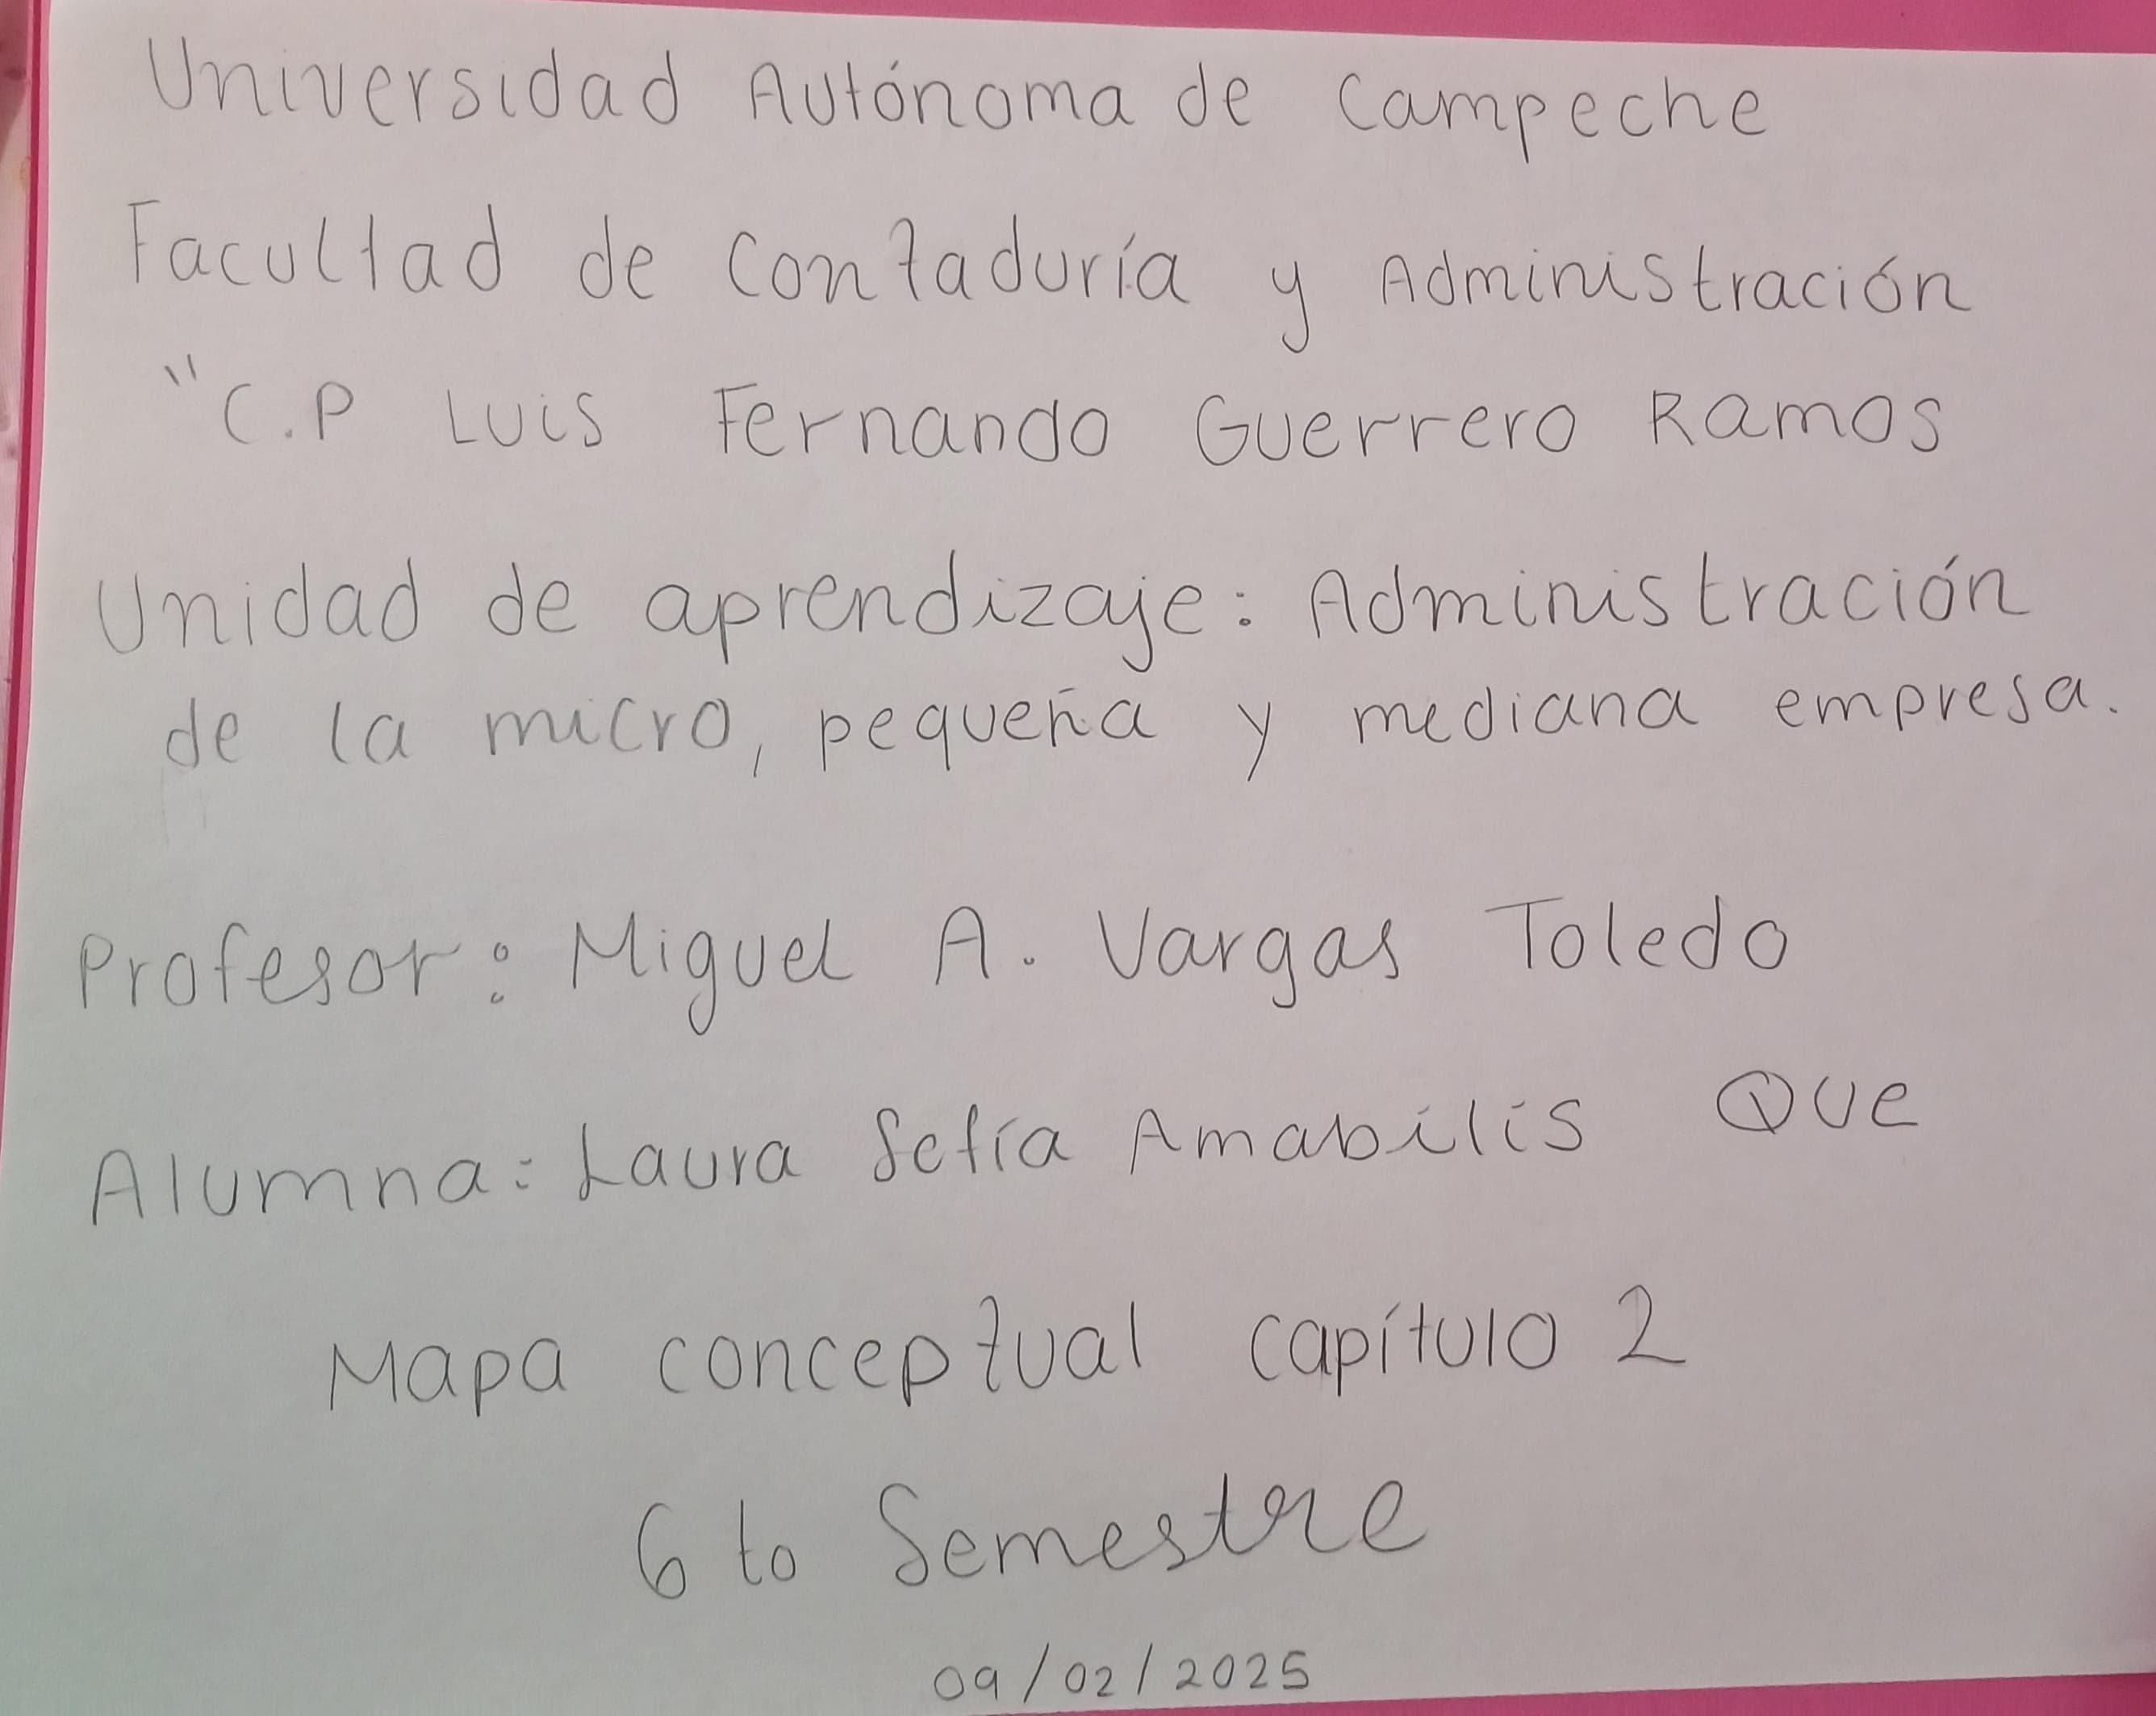 Universidad Autónoma de Campeche
Facultad de Contaduría y Administración
"C.P Luis Fernando Guerrero Ramos
Unidad de aprendizaje: Administración
de la micro, pequeña y mediana empresa.
Profesor: Miguel A. Vargas Toledo
Alumna: Laura Sofía Amabilis Que
Mapa conceptual capítulo 2
6 to Semestre
09/02/2025